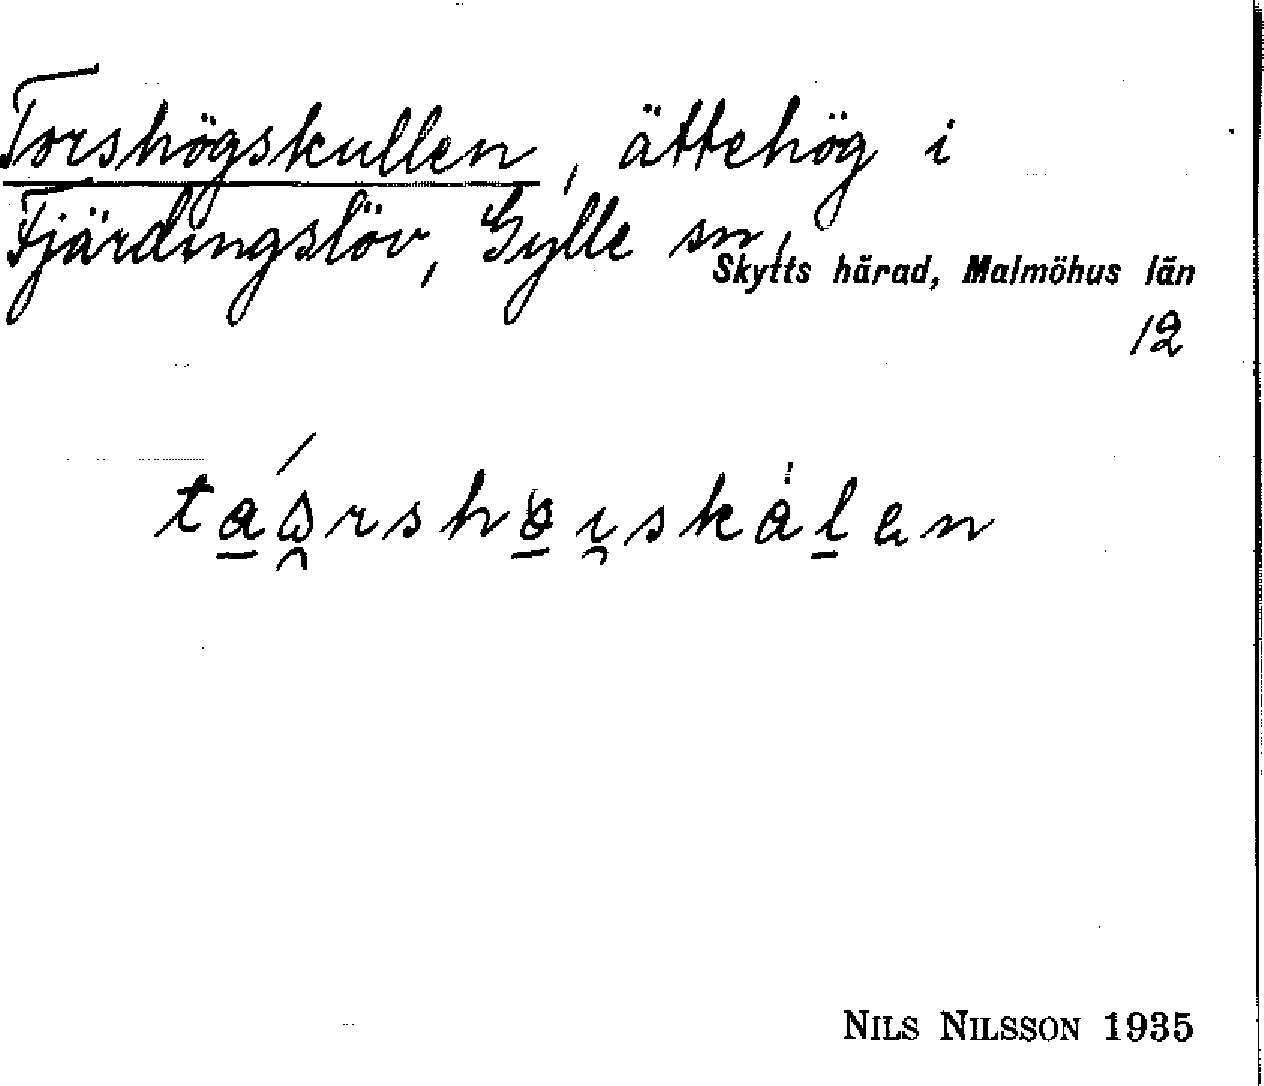 Torshögskullen, ättehög i
Fjärdingslöv, Gylle sn,
Skytts härad, Malmöhus län
12
NILS NILSSON 1935